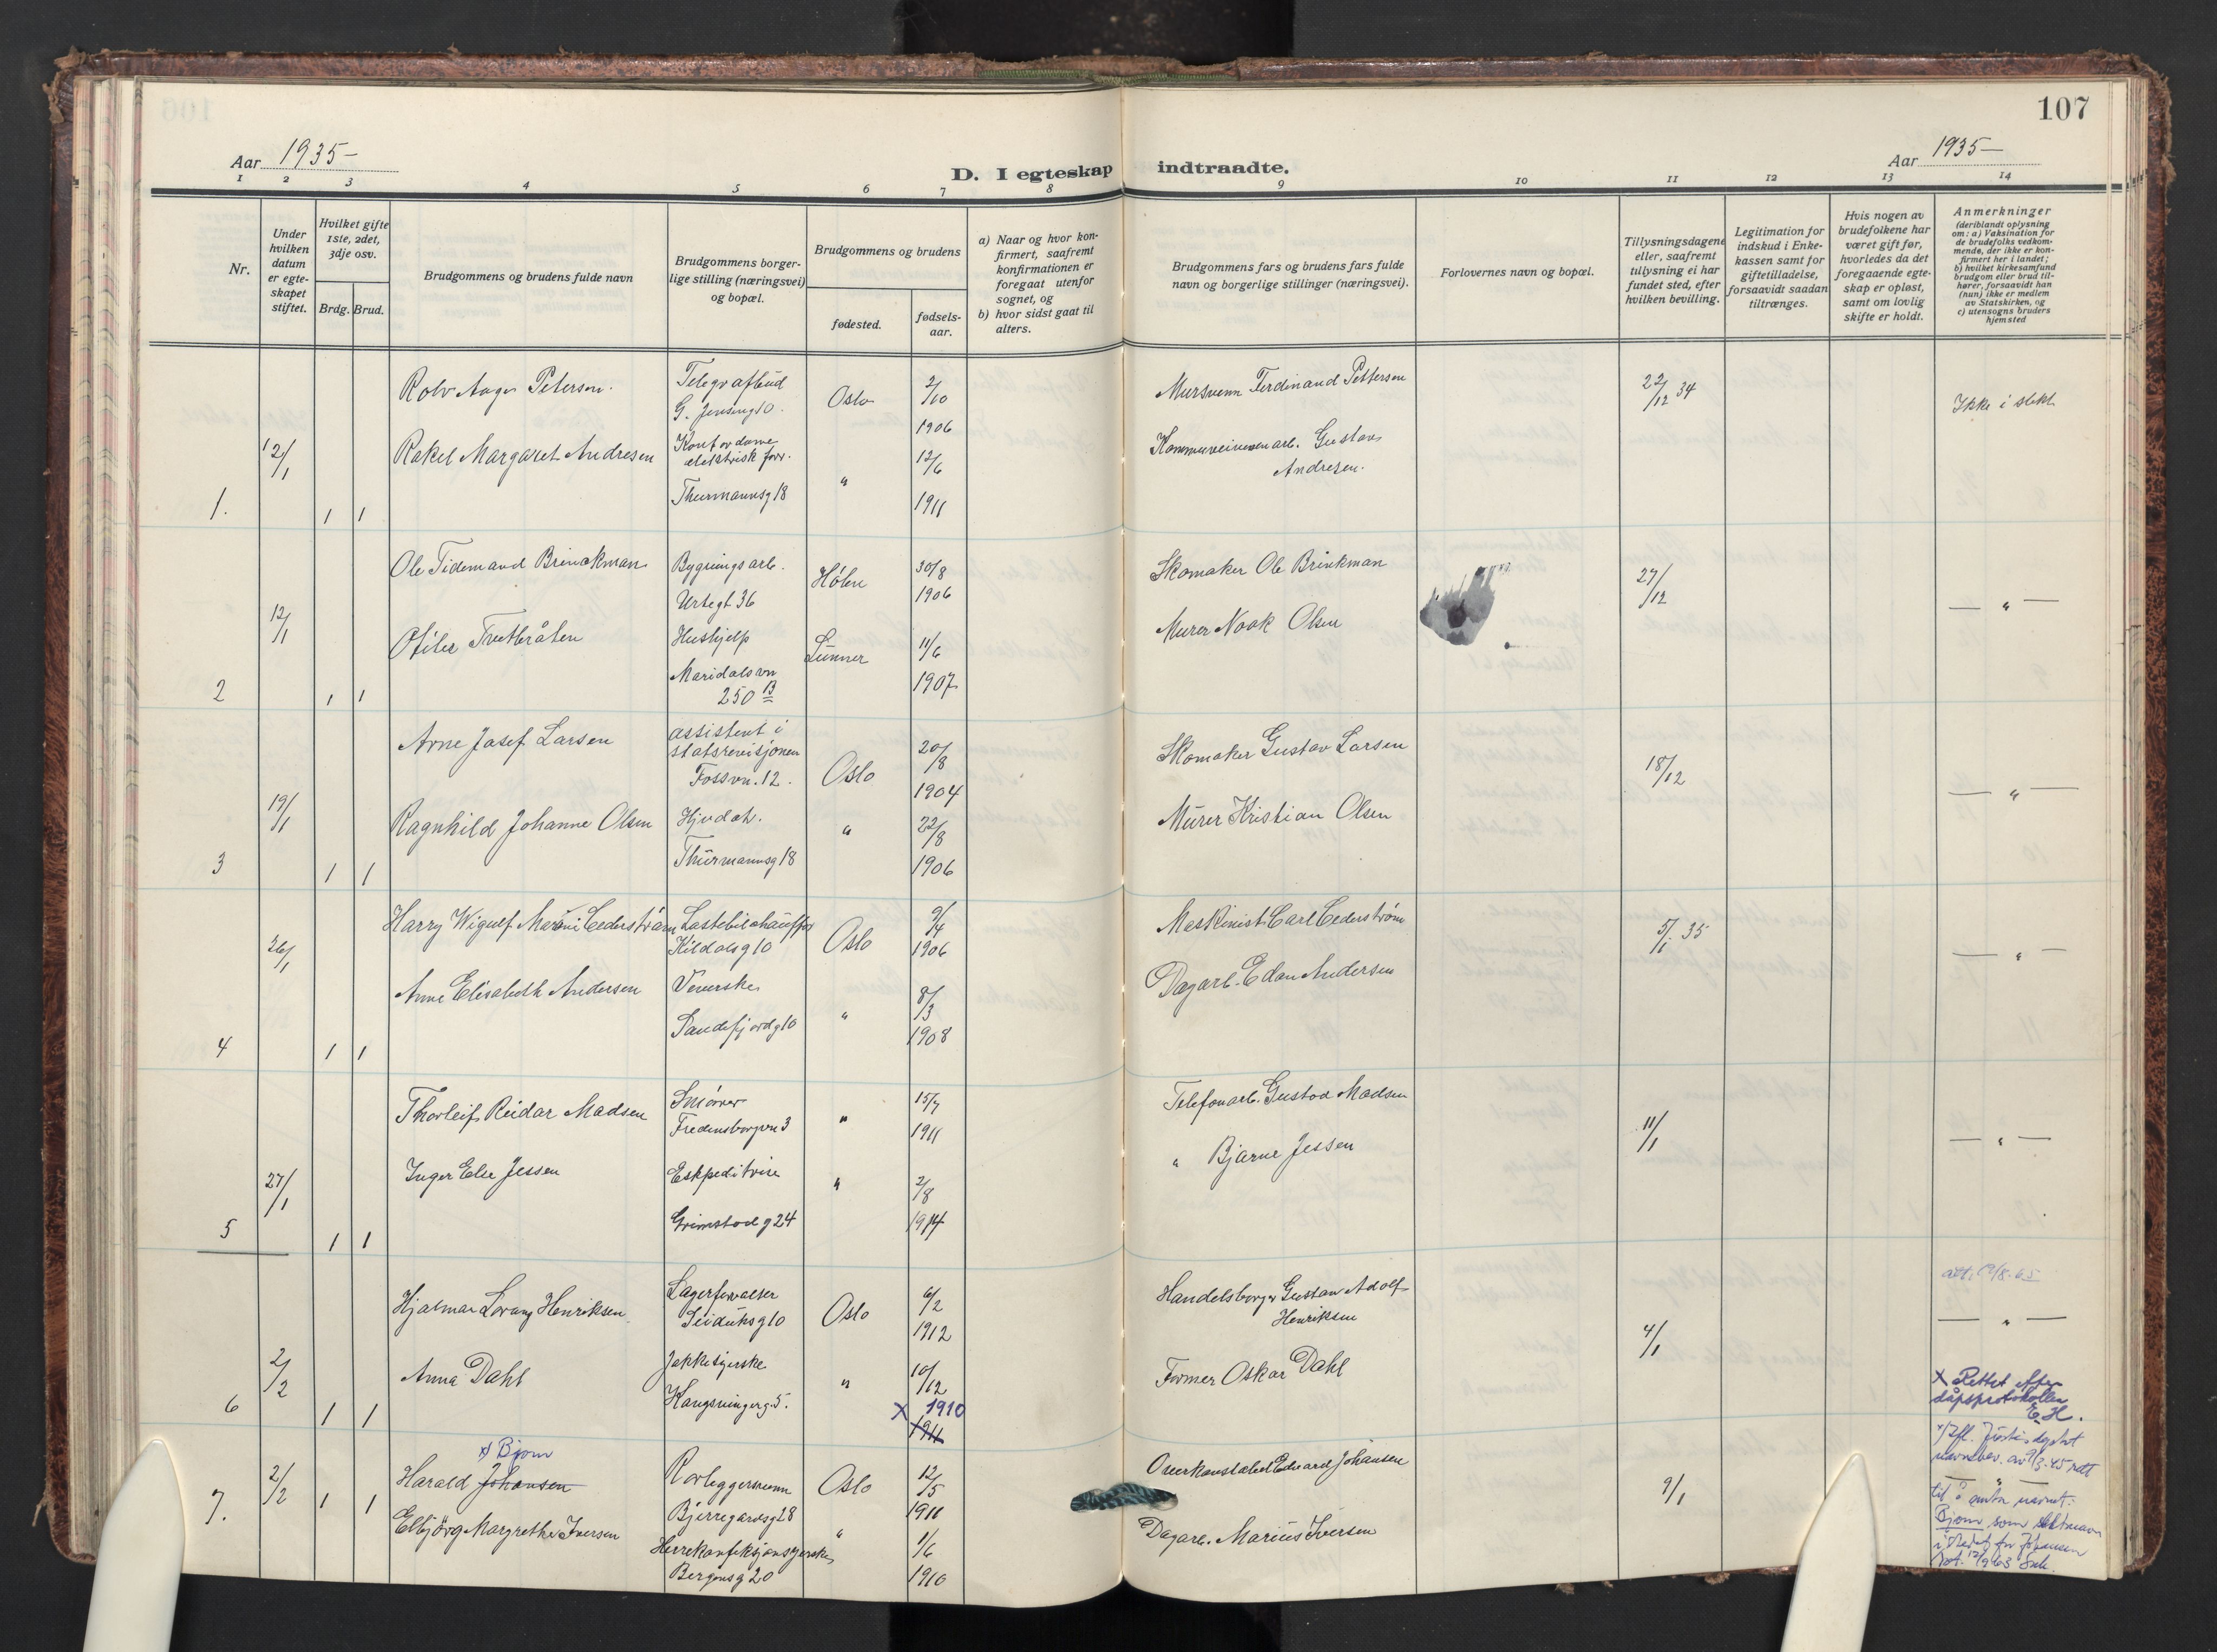 106
107
Aar 1935-
Aar 1935-
D. I egteskap indtraadte.
1 2 3 4 5 6 7 8 9 10 11 12 13 14
Nr.
Under hvilken datum er egte-skapet stiftet.
Hvilket gifte 1ste, 2det, 3dje osv.
Brdg. Brud.
Brudgommens og brudens fulde navn
Brudgommens borger-
lige stilling (næringsvei)
og bopæl.
Brudgommens og brudens
fødested.
fødsels-
aar.
a) Naar og hvor kon-
firmert, saafremt
konfirmationen er
foregaat utenfor
sognet, og
b) hvor sidst gaat til
alters.
Brudgommens fars og brudens fars fulde
navn og borgerlige stillinger (næringsvei).
Forlovernes navn og bopæl.
Tillysningsdagene
eller, saafremt
tillysning ei har
fundet sted, efter
hvilken bevilling.
Legitimation for
indskud i Enke-
kassen samt for
giftetilladelse,
forsaavidt saadan
tiltrænges.
Hvis nogen av
brudefolkene har
været gift før,
hvorledes da det
foregaaende egte-
skap er opløst,
samt om lovlig
skifte er holdt.
Anmerkninger
(deriblandt oplysning
om: a) Vaksination for
de brudefolks vedkom-
mende, der ikke er kon-
firmert her i landet;
b) hvilket kirkesamfund
brudgom eller brud til-
hører, forsaavidt han
(hun) ikke er medlem
av Statskirken, og
c) utensogns bruders
hjemsted
1. 12/1 1 1
Rolv Aage Petersen. Telegrafbud G. Jensensg 10. Oslo 2/10 1906 Mursvenn Ferdinand Pettersen 22/12 34 Ikke i slekt
Rakel Margaret Andresen Kontordame elektrisk forr. Thurmannsg 18 " 12/6 1911 Gustav Andresen.
2 12/1 1 1
Ole Tidemand Brinckman Bygningsarb. Urtegt 36 Hölen 30/8 1906 Skomaker Ole Brinkman 27/12 — " —
Otilie Tveitbråten Hushjelp Maridalsvn 250 B Lunner 11/6 1907 Murer Noak Olsen
3 19/1 1 1
Arne Josef Larsen assistent i statsrevisjonen Fossvn. 12. Oslo 20/8 1904 Skomaker Gustav Larsen 18/12 — " —
Ragnhild Johanne Olsen Hjved ar. Thurmannsg 18 " 22/8 1906 Murer Kristian Olsen
4 26/1 1 1
Harry Wigulf Cederström Lastebilchauffør Kildalsg 10 Oslo 9/4 1906 Maskinist Carl Cederström 5/1 35 — " —
Anne Elisabeth Andersen Veverske Sandefjordg 10 " 8/3 1908 Dagarb. Edon Andersen
5 27/1 1 1
Thorleif Reidar Madsen Smörer Fredensborgvn 3 " 15/7 1911 Telefonarb. Gustav Madsen 11/1 — " —
Inger Else Jessen Ekspeditrise Grimstadg 24 " 2/8 1914 " Bjarne Jessen
6 2/2 1 1
Hjalmar Henriksen Lagerforvalter Seiduksg 10 Oslo 6/2 1912 Handelsborger Gustav Adolf Henriksen 4/1 — " —
Anna Dahl Jakkesyerske Kongsvingerg. 5. " 10/12 x 1910 1911 Former Oskar Dahl
x Rettet efter
dåpsprotokollen
E.H.
7. 2/2 1 1
x) Bjom
Harald Johansen Rørleggersvenn Bjerregårdsg 28 Oslo 12/5 1911 Overkonstabel Edvard Johansen 9/1 — " —
Elbjörg Margrethe Iversen Herrekonfeksjonsyerske Bergensg 20 " 1/6 1910 Dagarb. Marius Iversen
x) Ifl. Justisdepart
navnebev. av 9/3. 45 rett
til å anta navnet:
Bjom som slektnavn
i stedet for Johansen